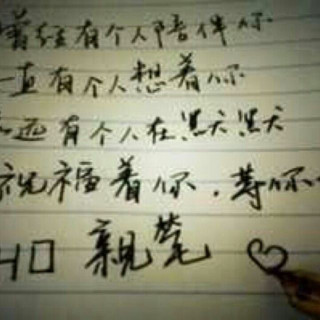 曾经有个人陪伴你
一直有个人想着你
永远有个人在默默
祝福着你，等你
親